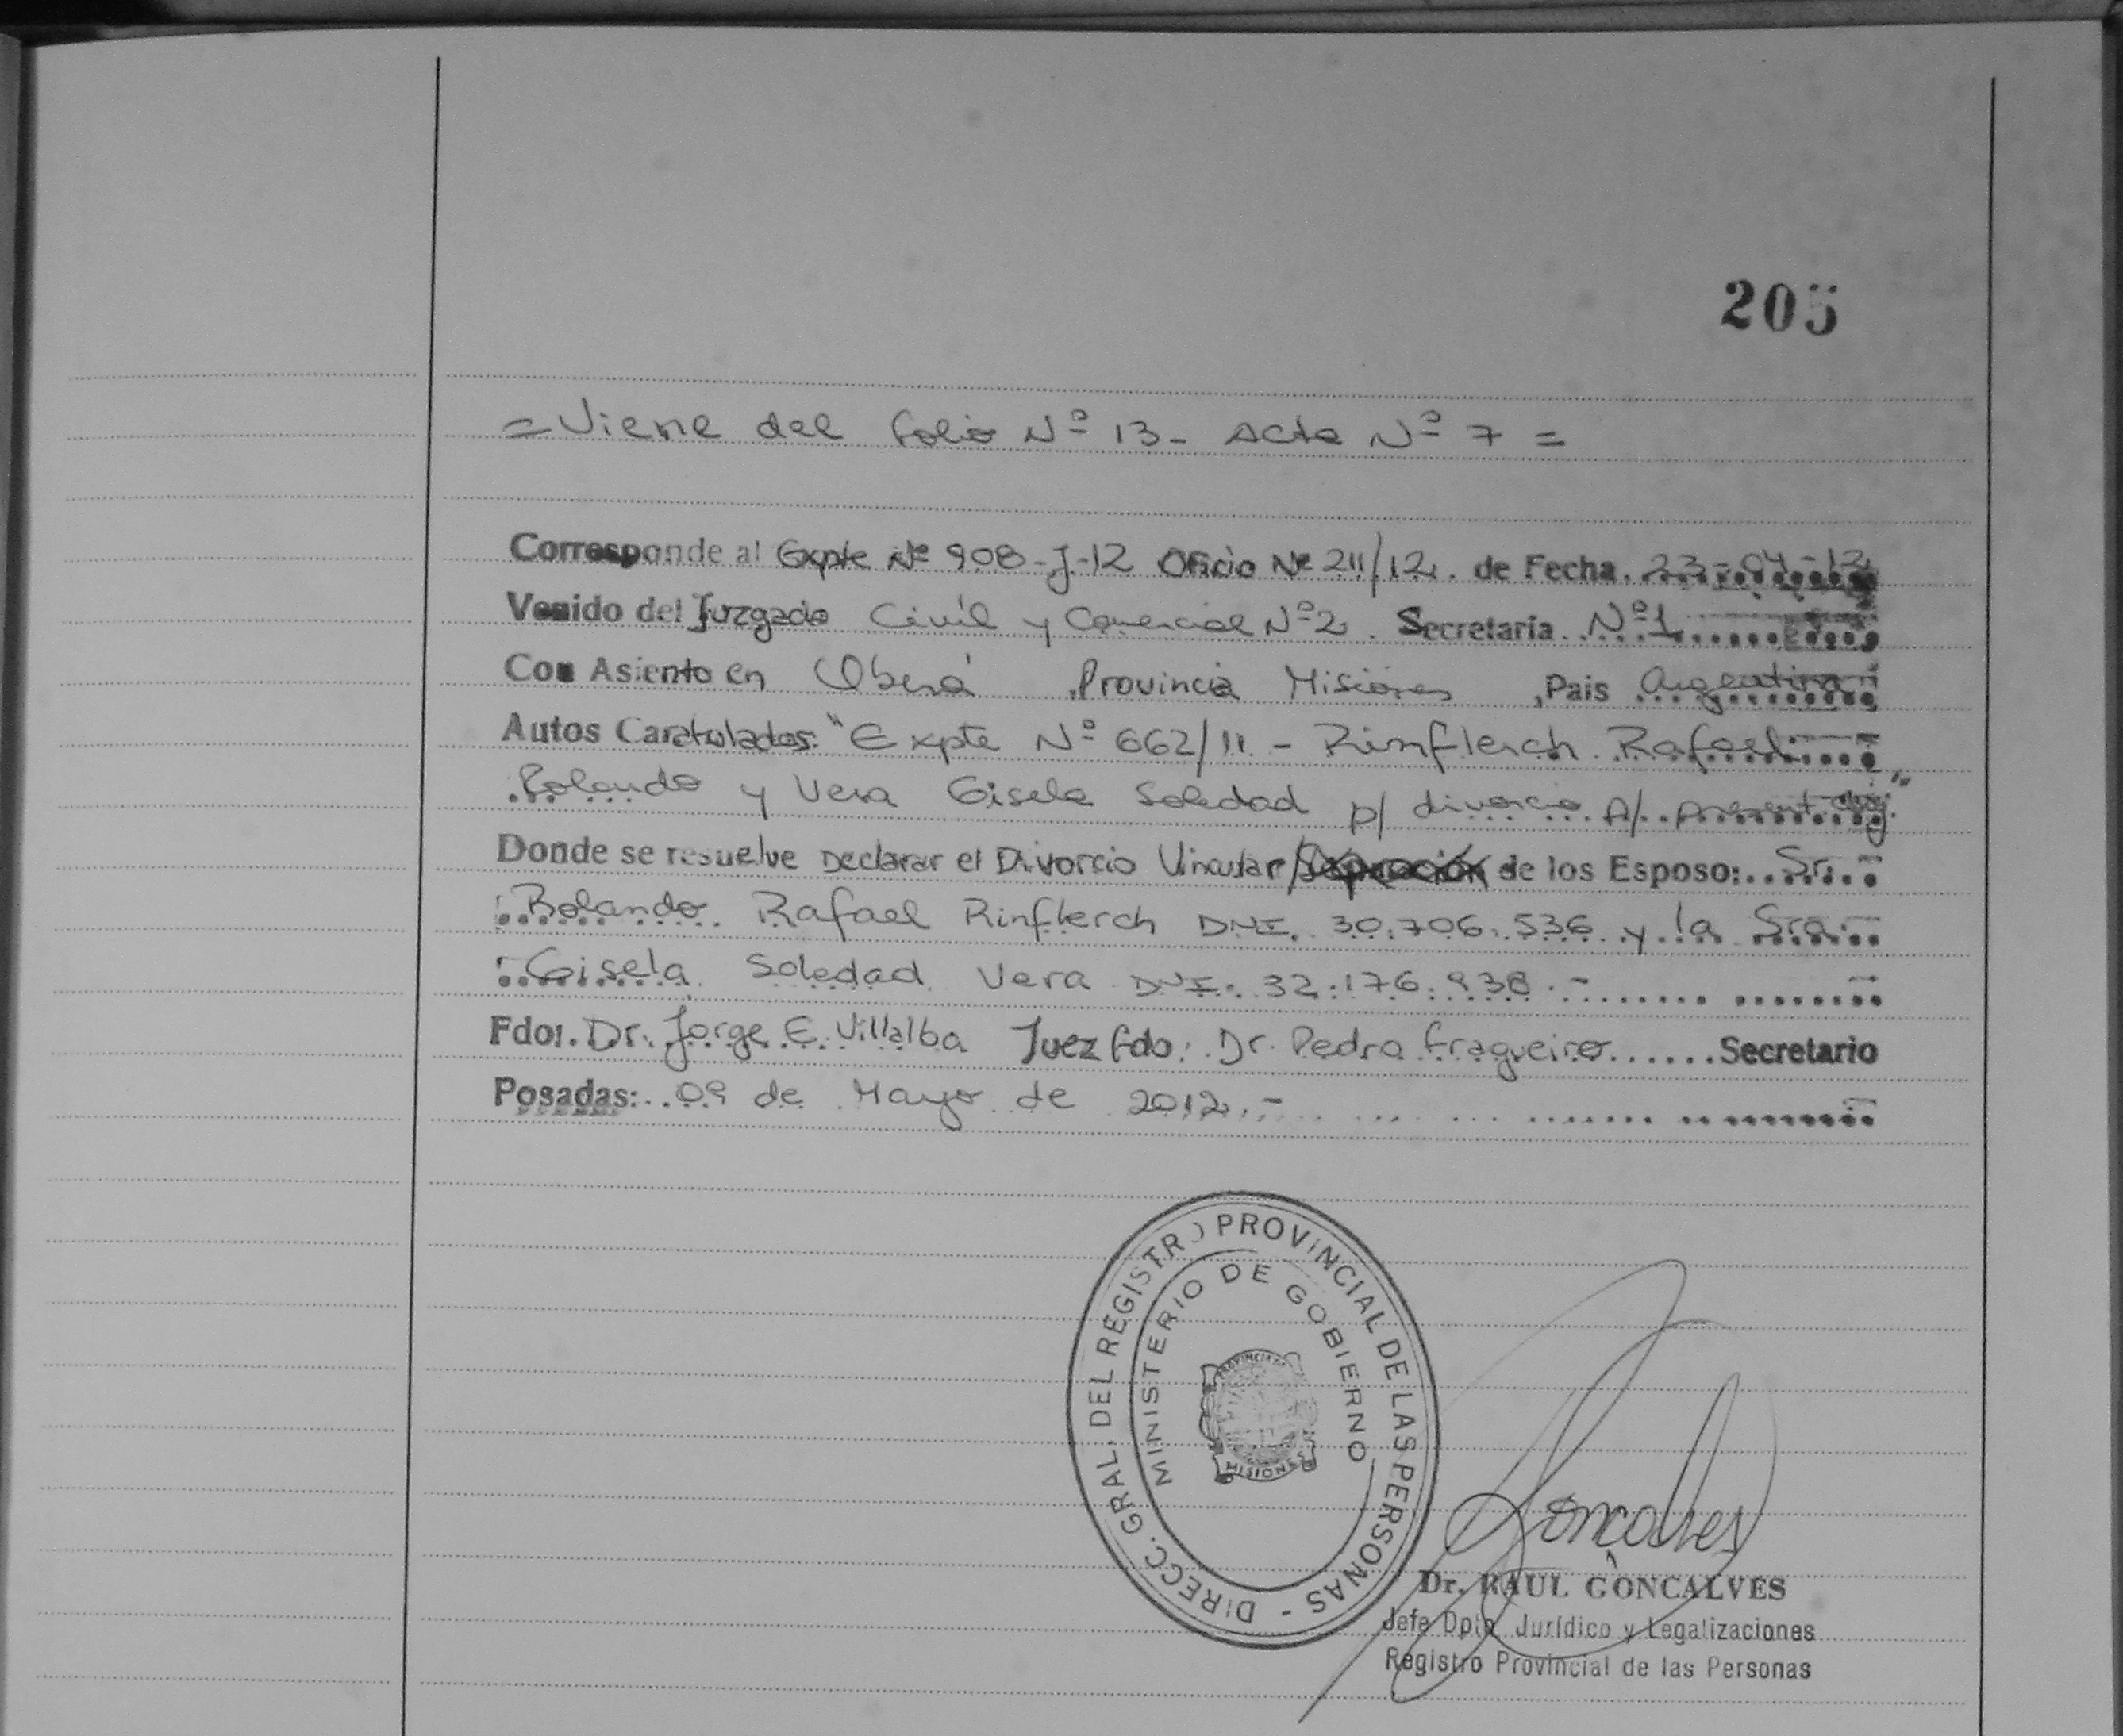 205
= Viene del folio Nº 13 - Acta Nº 7 =
Corresponde al Expte Nº 908-J-12 Oficio Nº 211/12. de Fecha. 23-04-12
Venido del Juzgado Civil y Comercial Nº 2. Secretaría Nº 1
Con Asiento en Oberá , Provincia Misiones , Pais Argentina
Autos Caratulados: "Expte Nº 662/11 - Rinflerch Rafael
Rolando y Vera Gisela Soledad p/ divorcio p/. present. conj."
Donde se resuelve Declarar el Divorcio Vincular/Separación de los Esposo: Sr.
Rolando Rafael Rinflerch DNI. 30.706.536 y la Sra.
Gisela Soledad Vera DNI. 32.176.938.-
Fdo: Dr. Jorge E. Villalba Juez fdo: Dr. Pedro Fragueiro...... Secretario
Posadas: 09 de Mayo de 2012.-
DIRECC. GRAL. DEL REGISTRO PROVINCIAL DE LAS PERSONAS -
MINISTERIO DE GOBIERNO
PROVINCIA DE
MISIONES
Goncalves
Dr. RAUL GONCALVES
Jefe Dpto Jurídico y Legalizaciones
Registro Provincial de las Personas